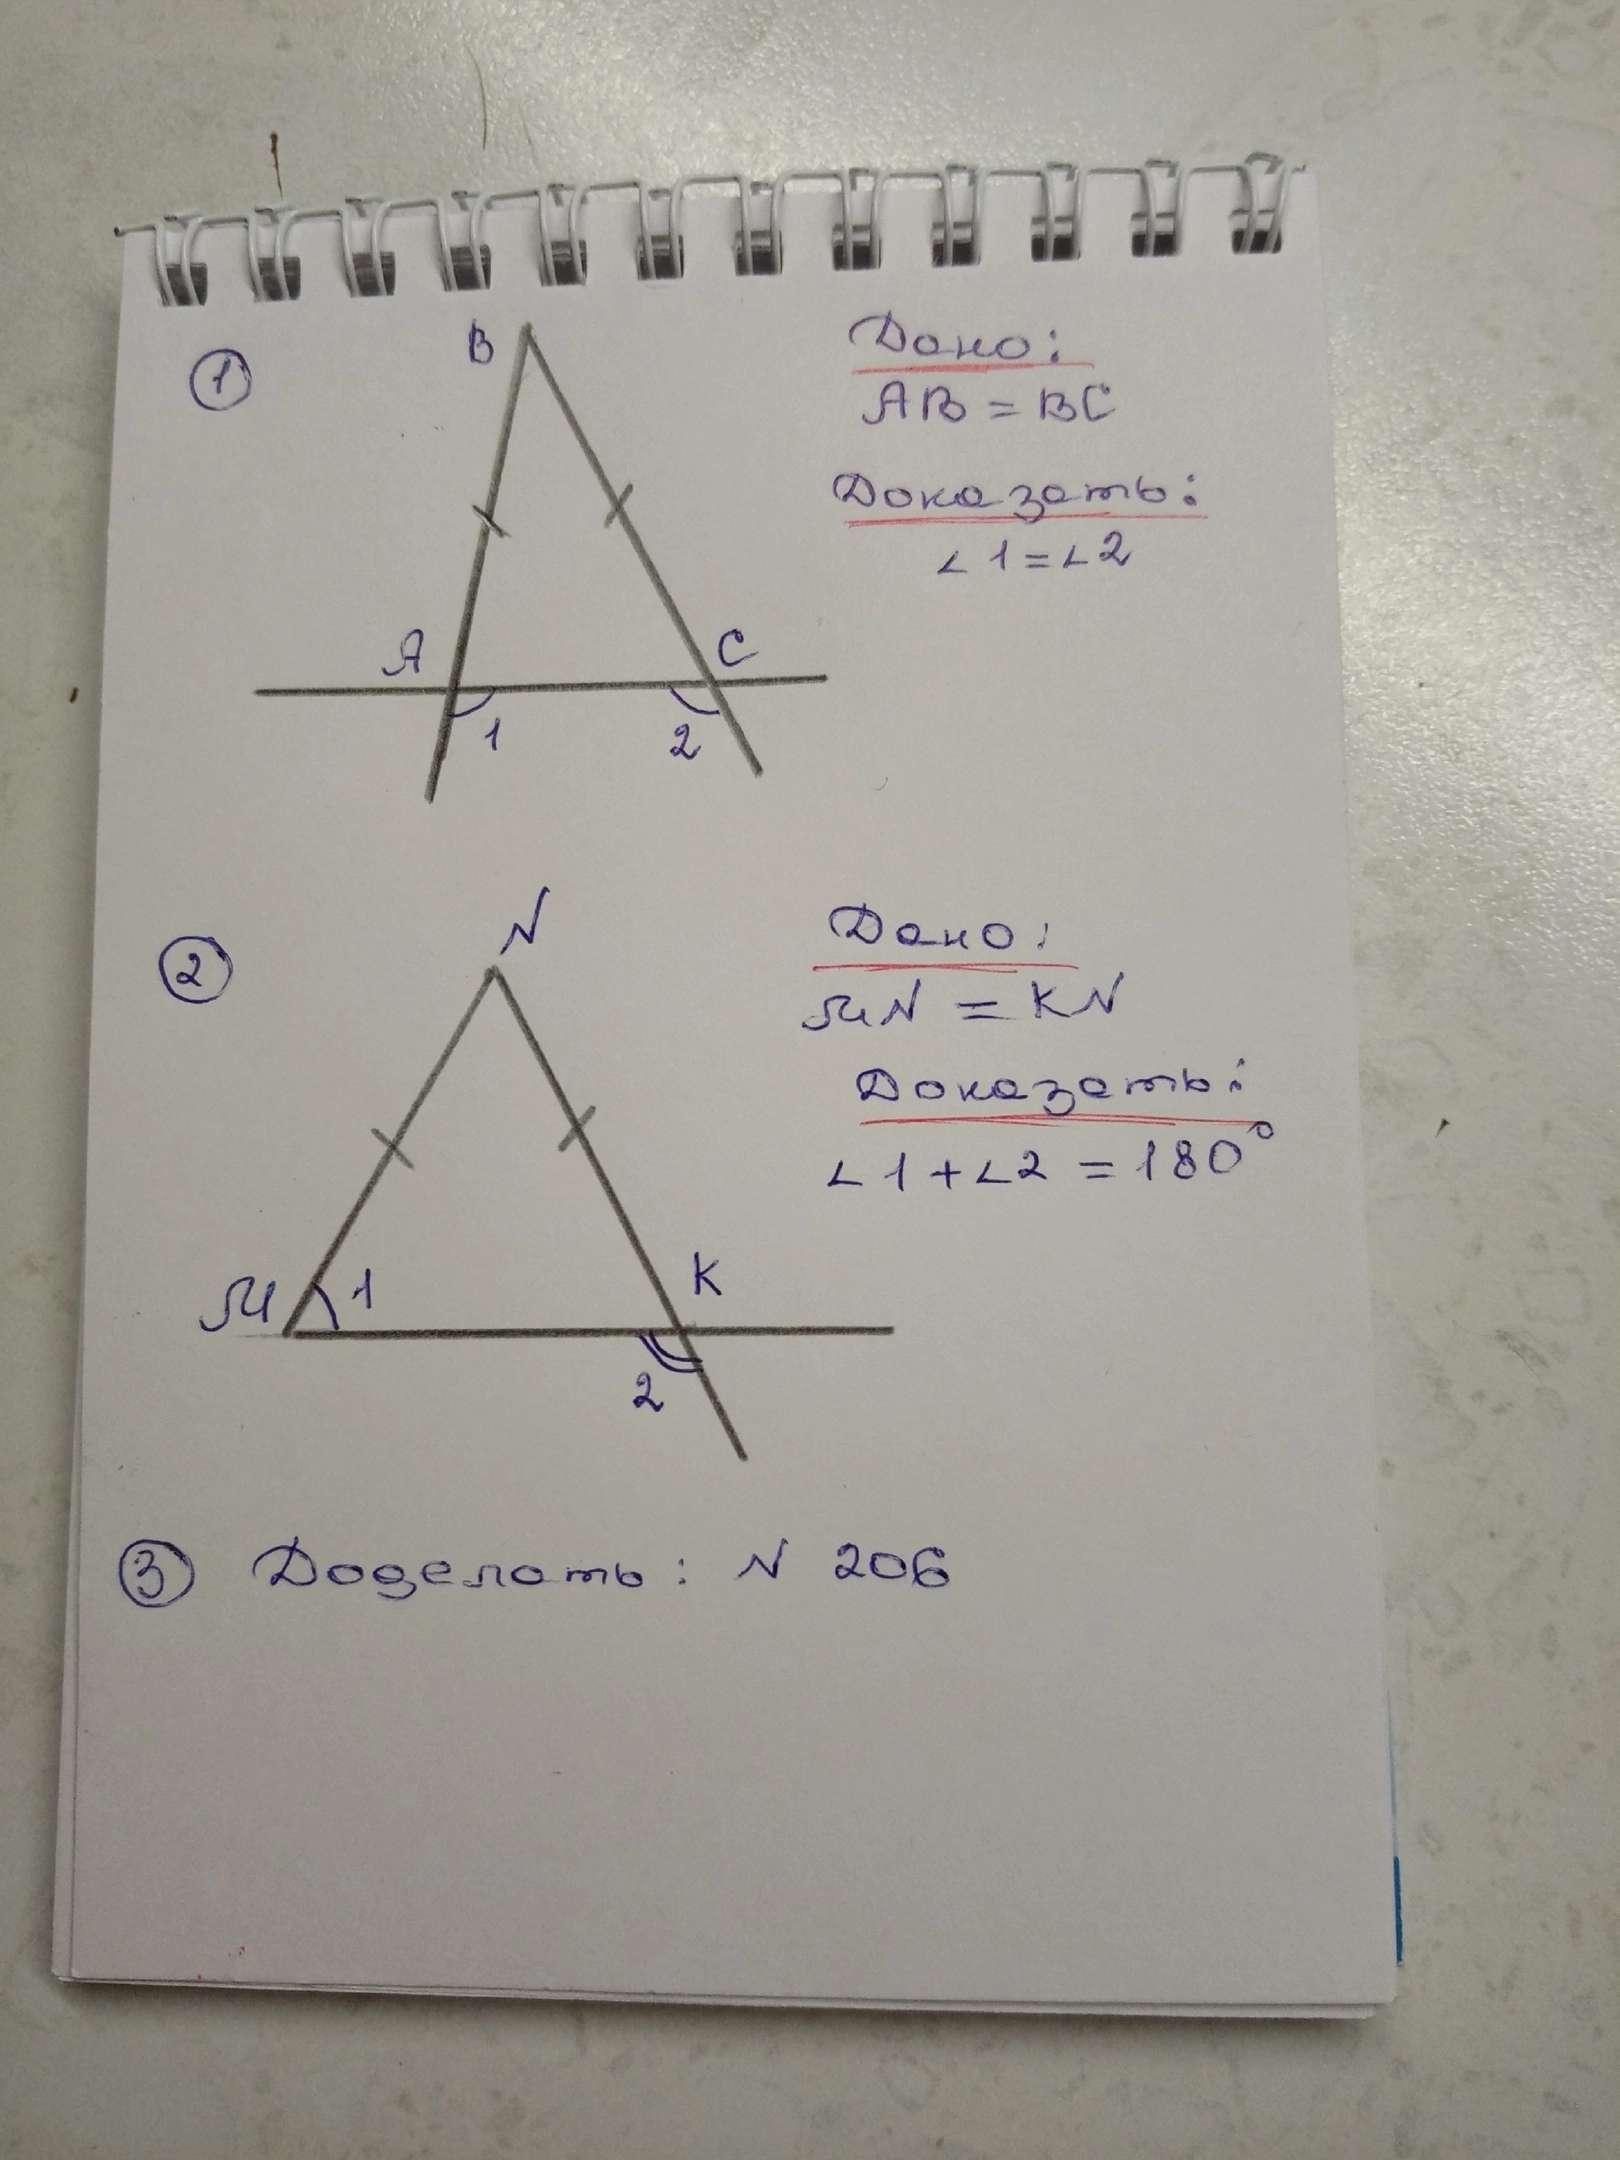 ①
B
Дано:
AB = BC
Доказать:
∠1=∠2
A
C
1
2
②
N
Дано:
MN = KN
Доказать:
∠1+∠2 = 180°
M
1
K
2
③ Доделать: N 206